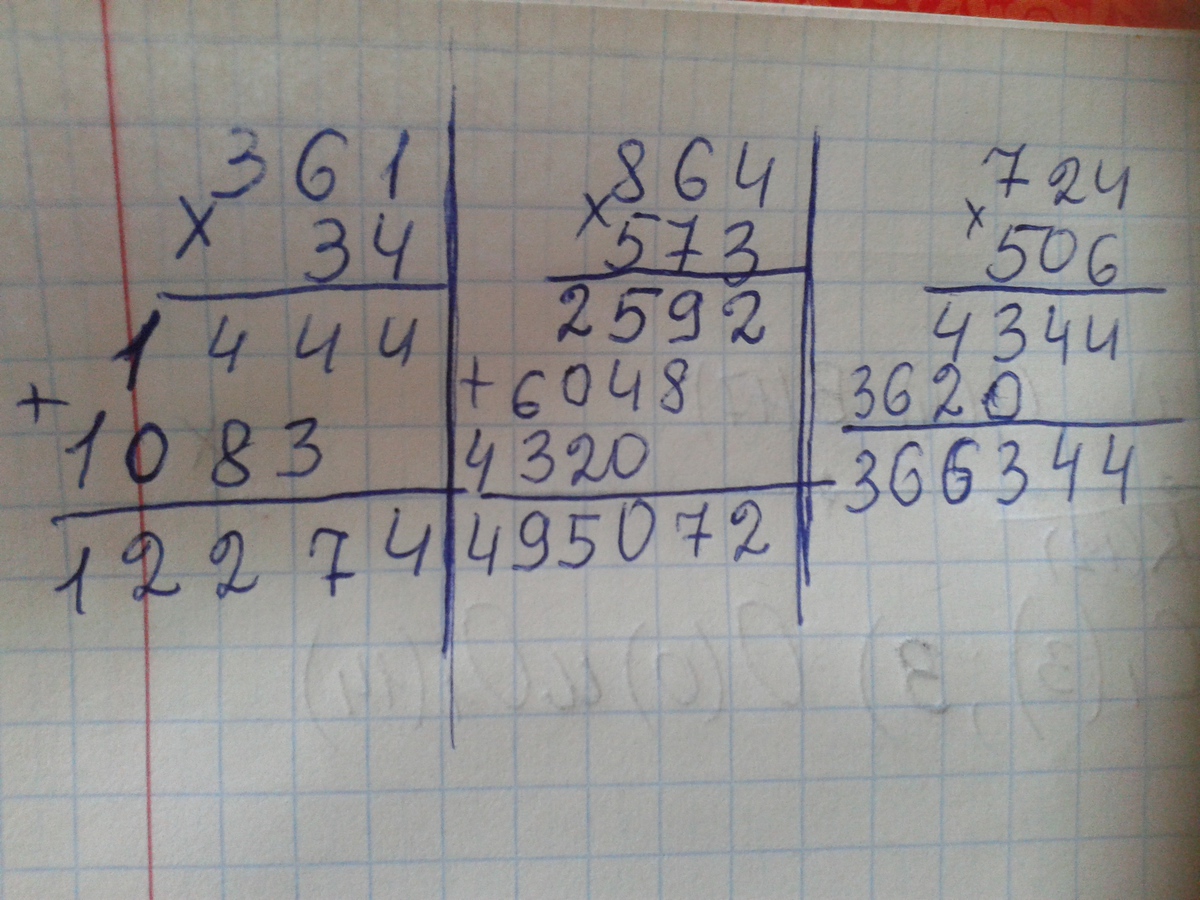 361
× 34
1444
+
1083
12274
864
× 573
2592
+ 6048
4320
495072
724
× 506
4344
3620
366344